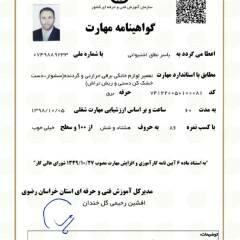 سازمان آموزش فنی و حرفه ای کشور
گواهینامه مهارت
اعطا می گردد به یاسر نطاق اشتیوانی با شماره ملی ۰۷۴۹۸۸۹۶۳۳
مطابق با استاندارد مهارت تعمیر لوازم خانگی برقی حرارتی و گردنده(سشوار-دست
خشک کن دستی و ریش تراش)
کد ۷۴۱۲۲۰۰۵۰۱۰۰۰۸۱ حرفه برق
به مدت ۶۰ ساعت و بر اساس ارزشیابی مهارت شغلی ۱۳۹۸/۱۰/۰۵
با کسب نمره ۸۶ به حروف هشتاد و شش از ۱۰۰ و سطح خیلی خوب
"به استناد ماده ۶ آیین نامه کارآموزی و افزایش مهارت مصوب ۱۳۴۹/۱۰/۲۷ شورای عالی کار"
مدیرکل آموزش فنی و حرفه ای استان خراسان رضوی
افشین رحیمی گل خندان
توضیحات: